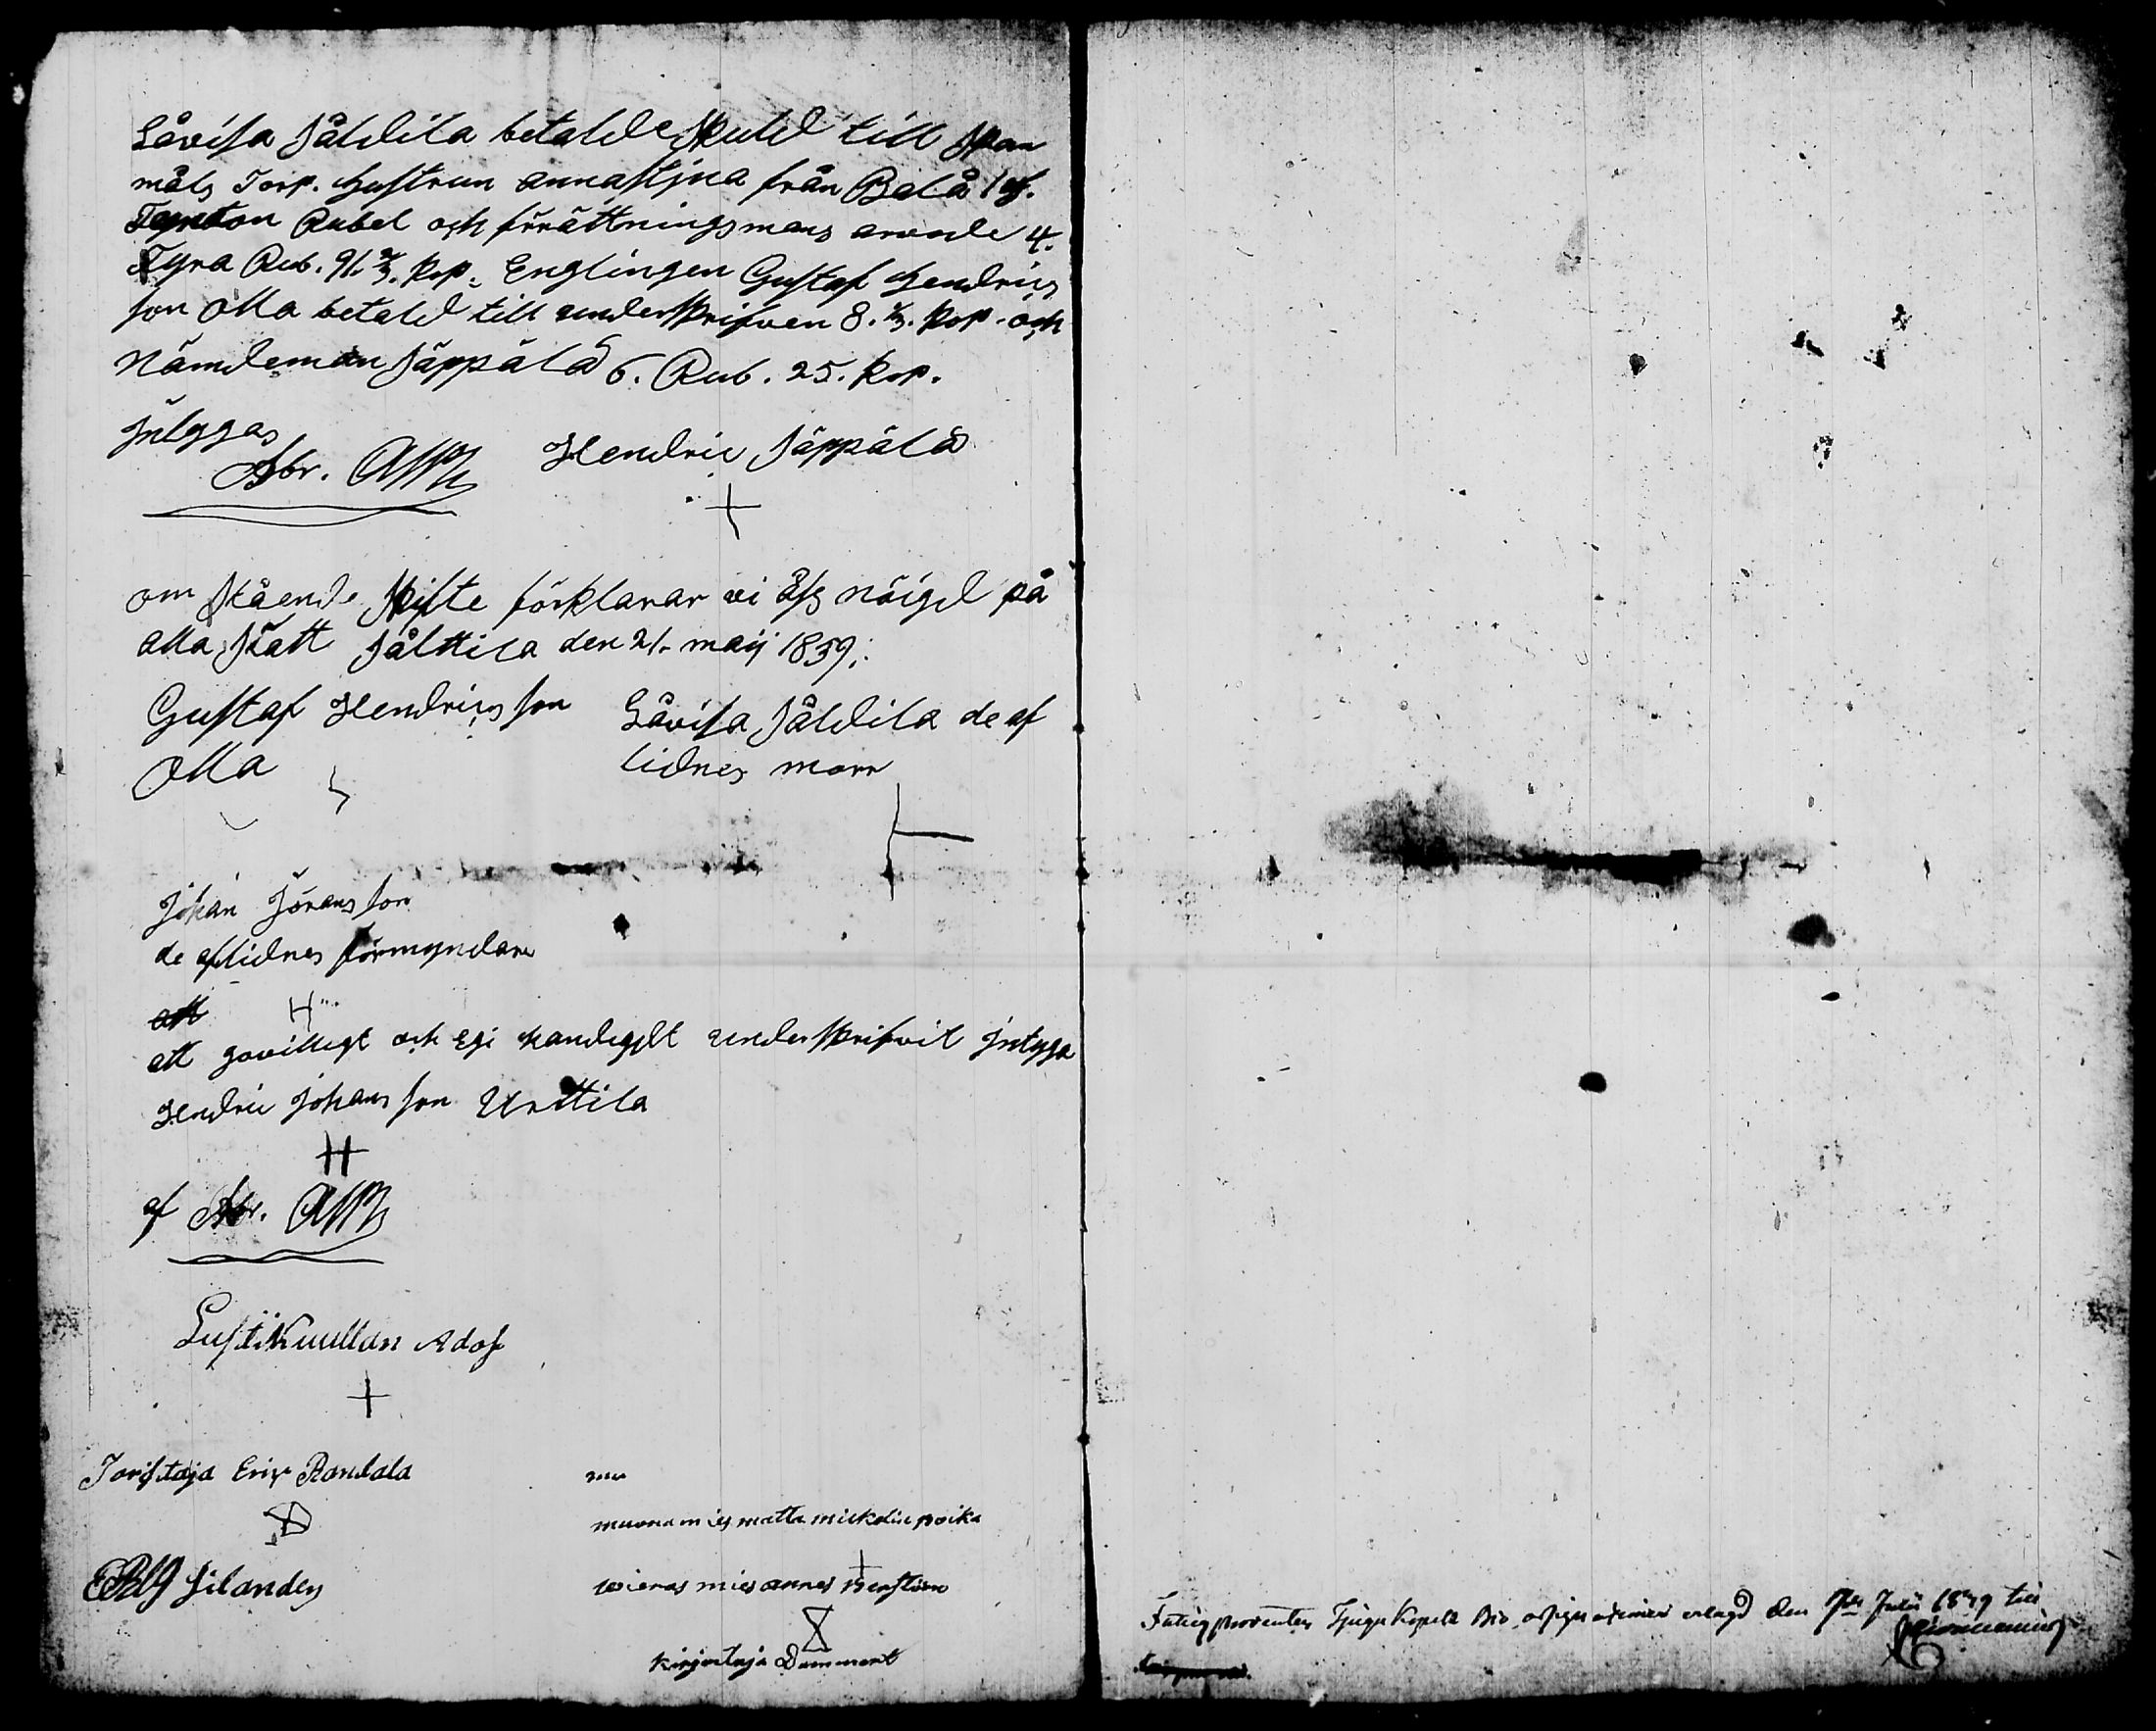 Låvisa Såldila betald skuld till span
måls Torp. hustrun annastjna från Balå 1 af.
Rubel och förrättningsmans arvode 4.
Fyra Rub. 91. 2/3. kop. Englingen Gustaf Hendrics
son Olla betald till underskrifven 8. 1/3. kop. och
Nämdeman Säppälä 6. Rub. 25. kop.
Intygas
Abr. Hendric Säppälä
om stående skifte förklarar vi åss nöigd på
alla sätt Sålttila den 21. maij 1839.
Gustaf Hendricsson Låvisa Såldila de af
Olla lidnes morr
Johan Jöransson
de aflidnes förmyndare
att
att govilligt och Egi handigt underskrifvit Intyga
Hendric Johansson Unttila
af Abr.
Lustikuullan Adof
Toristaja Erik Randala
muonamies matta mickelin poika
Silander
wieras mies annes
kirjottaja Dammert
Fattig procenten Tjugu Kopek Bco erlagd den Julii 1839 till